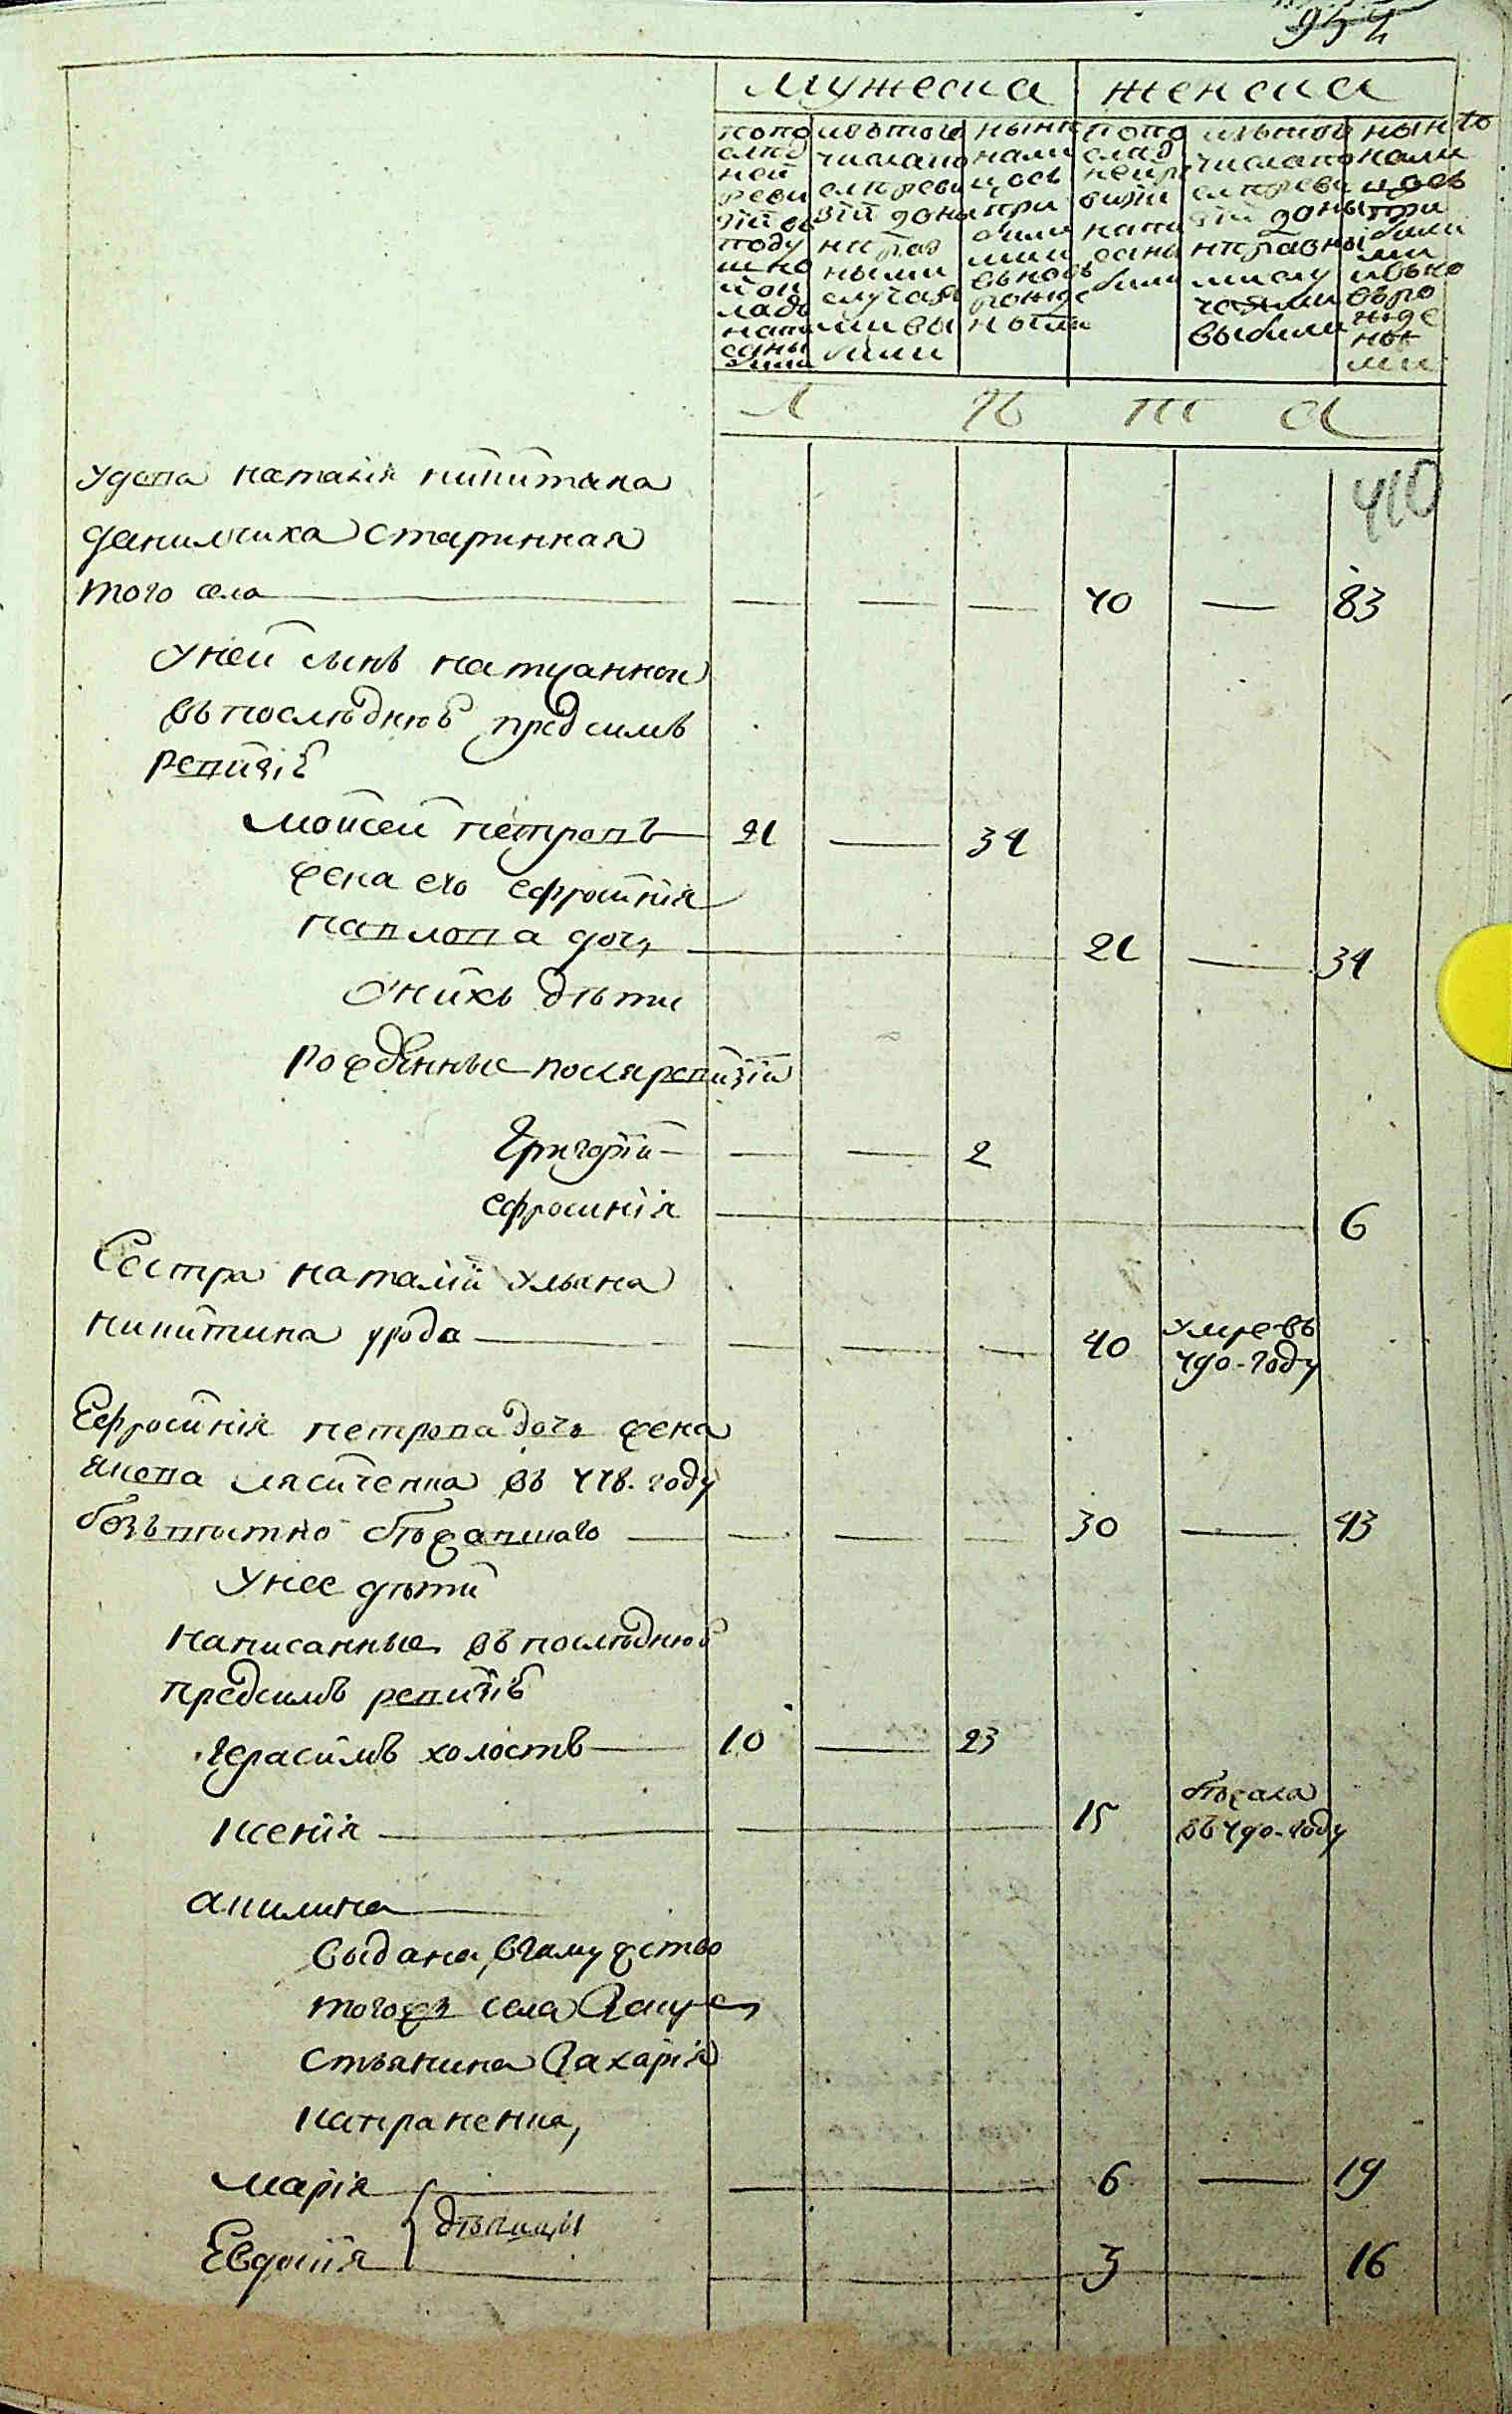 954
мужеска женска
по по
след
ней
реви
зіи въ
поду
шно
мъ ок
ладе
напи
саны
были
изъ того
числа по
сле реви
зіи доны
не раз
ными
случая
ми вы
были
ныне
нали
цось
при
были
ми и
вьновь
рожде
ными
по по
след
ней ре
визіи
напи
саны
были
изъ того
числа по
сле реви
зіи доны
не разны
ми слу
чаями
выбыли
ныне
нали
цось
при
были
ми
и вьно
вь ро
жде
ны
ми
л ѣ т а
410
удова наталія никитина
данилчиха старинная
того села — — — 40 — 83
у неи сынъ написаннои
въ последнюю пред симъ
ревизію
моисеи петровъ 21 — 34
жена его ефросинія
павлова дочь 21 — 34
у нихъ дѣти
рожденные посля ревизіи
григоріи — — 2
ефросинія 6
Сестра наталіи ульяна
никитина урода — — — 40 умре въ
790-году
Ефросинія петрова дочь жена
якова лясченка въ 778. году
безъвѣстно бѣжавшаго — — — 30 — 43
у нее дѣти
написанные въ последнюю
предсимъ ревизію
герасимъ холостъ 10 — 23
ксенія 15 бѣжала
въ 790-году
акилина
выдана, в замужство
того жъ села
захарія
марія 6 — 19
дѣвицы
Евдокія 3 16